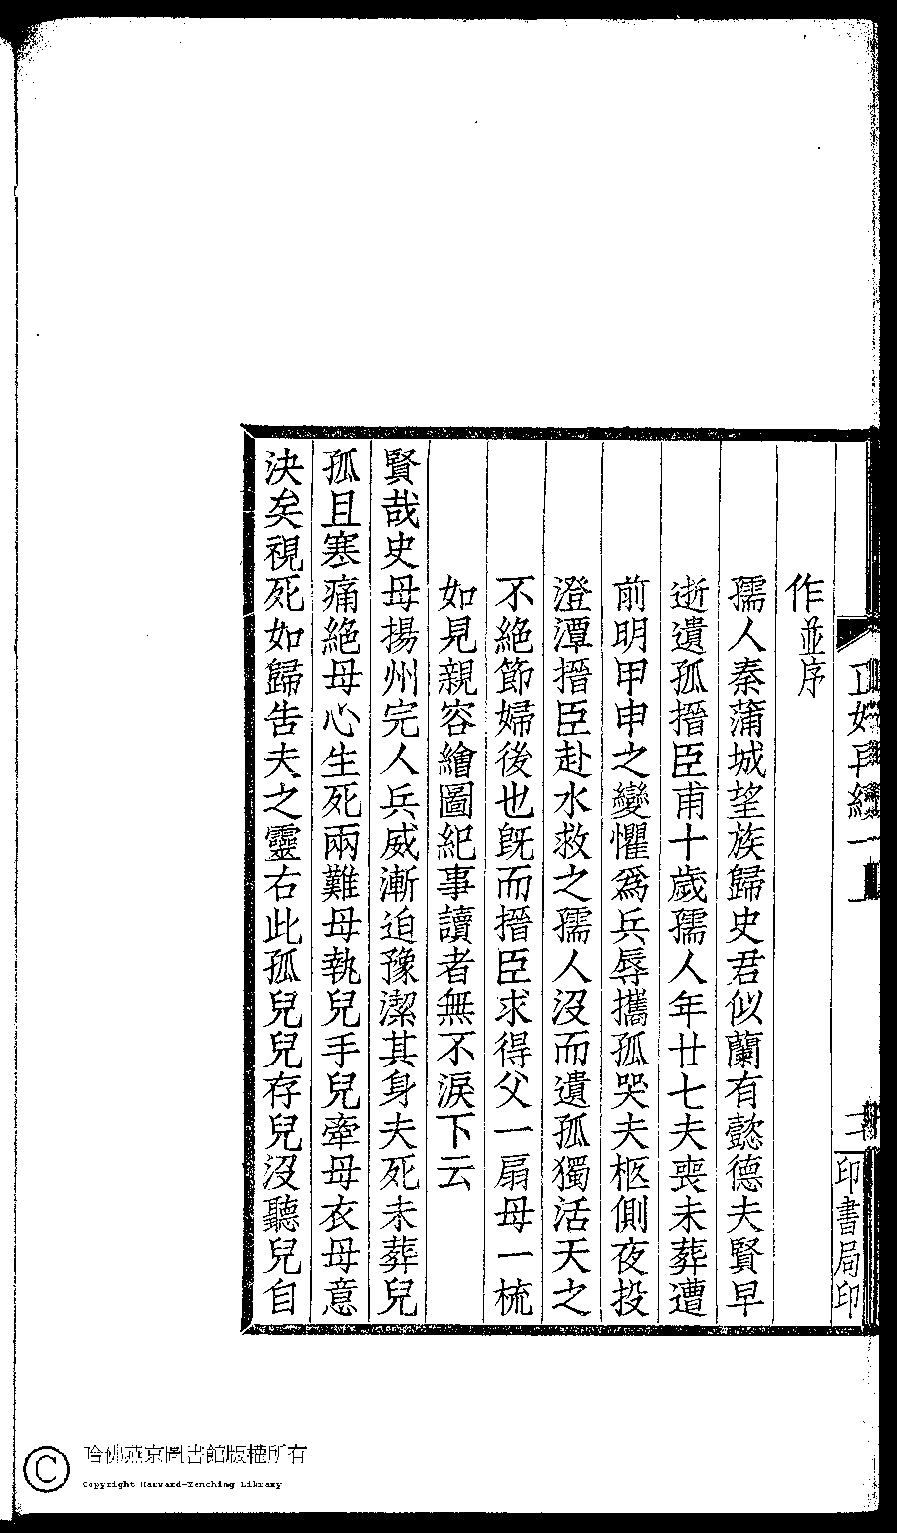 作並序
孺人秦蒲城望族歸史君似蘭有懿德夫賢早
逝遺孤搢臣甫十歲孺人年廿七夫喪未葬遭
前明甲申之變懼爲兵辱攜孤哭夫柩側夜投
澄潭搢臣赴水救之孺人沒而遺孤獨活天之
不絕節婦後也旣而搢臣求得父一扇母一梳
如見親容繪圖紀事讀者無不淚下云
賢哉史母揚州完人兵威漸迫豫潔其身夫死未葬兒
孤且寒痛絕母心生死兩難母執兒手兒牽母衣母意
決矣視死如歸告夫之靈右此孤兒兒存兒沒聽兒自
印書局印
哈佛燕京圖書館版權所有
Copyright Harvard-Yenching Library